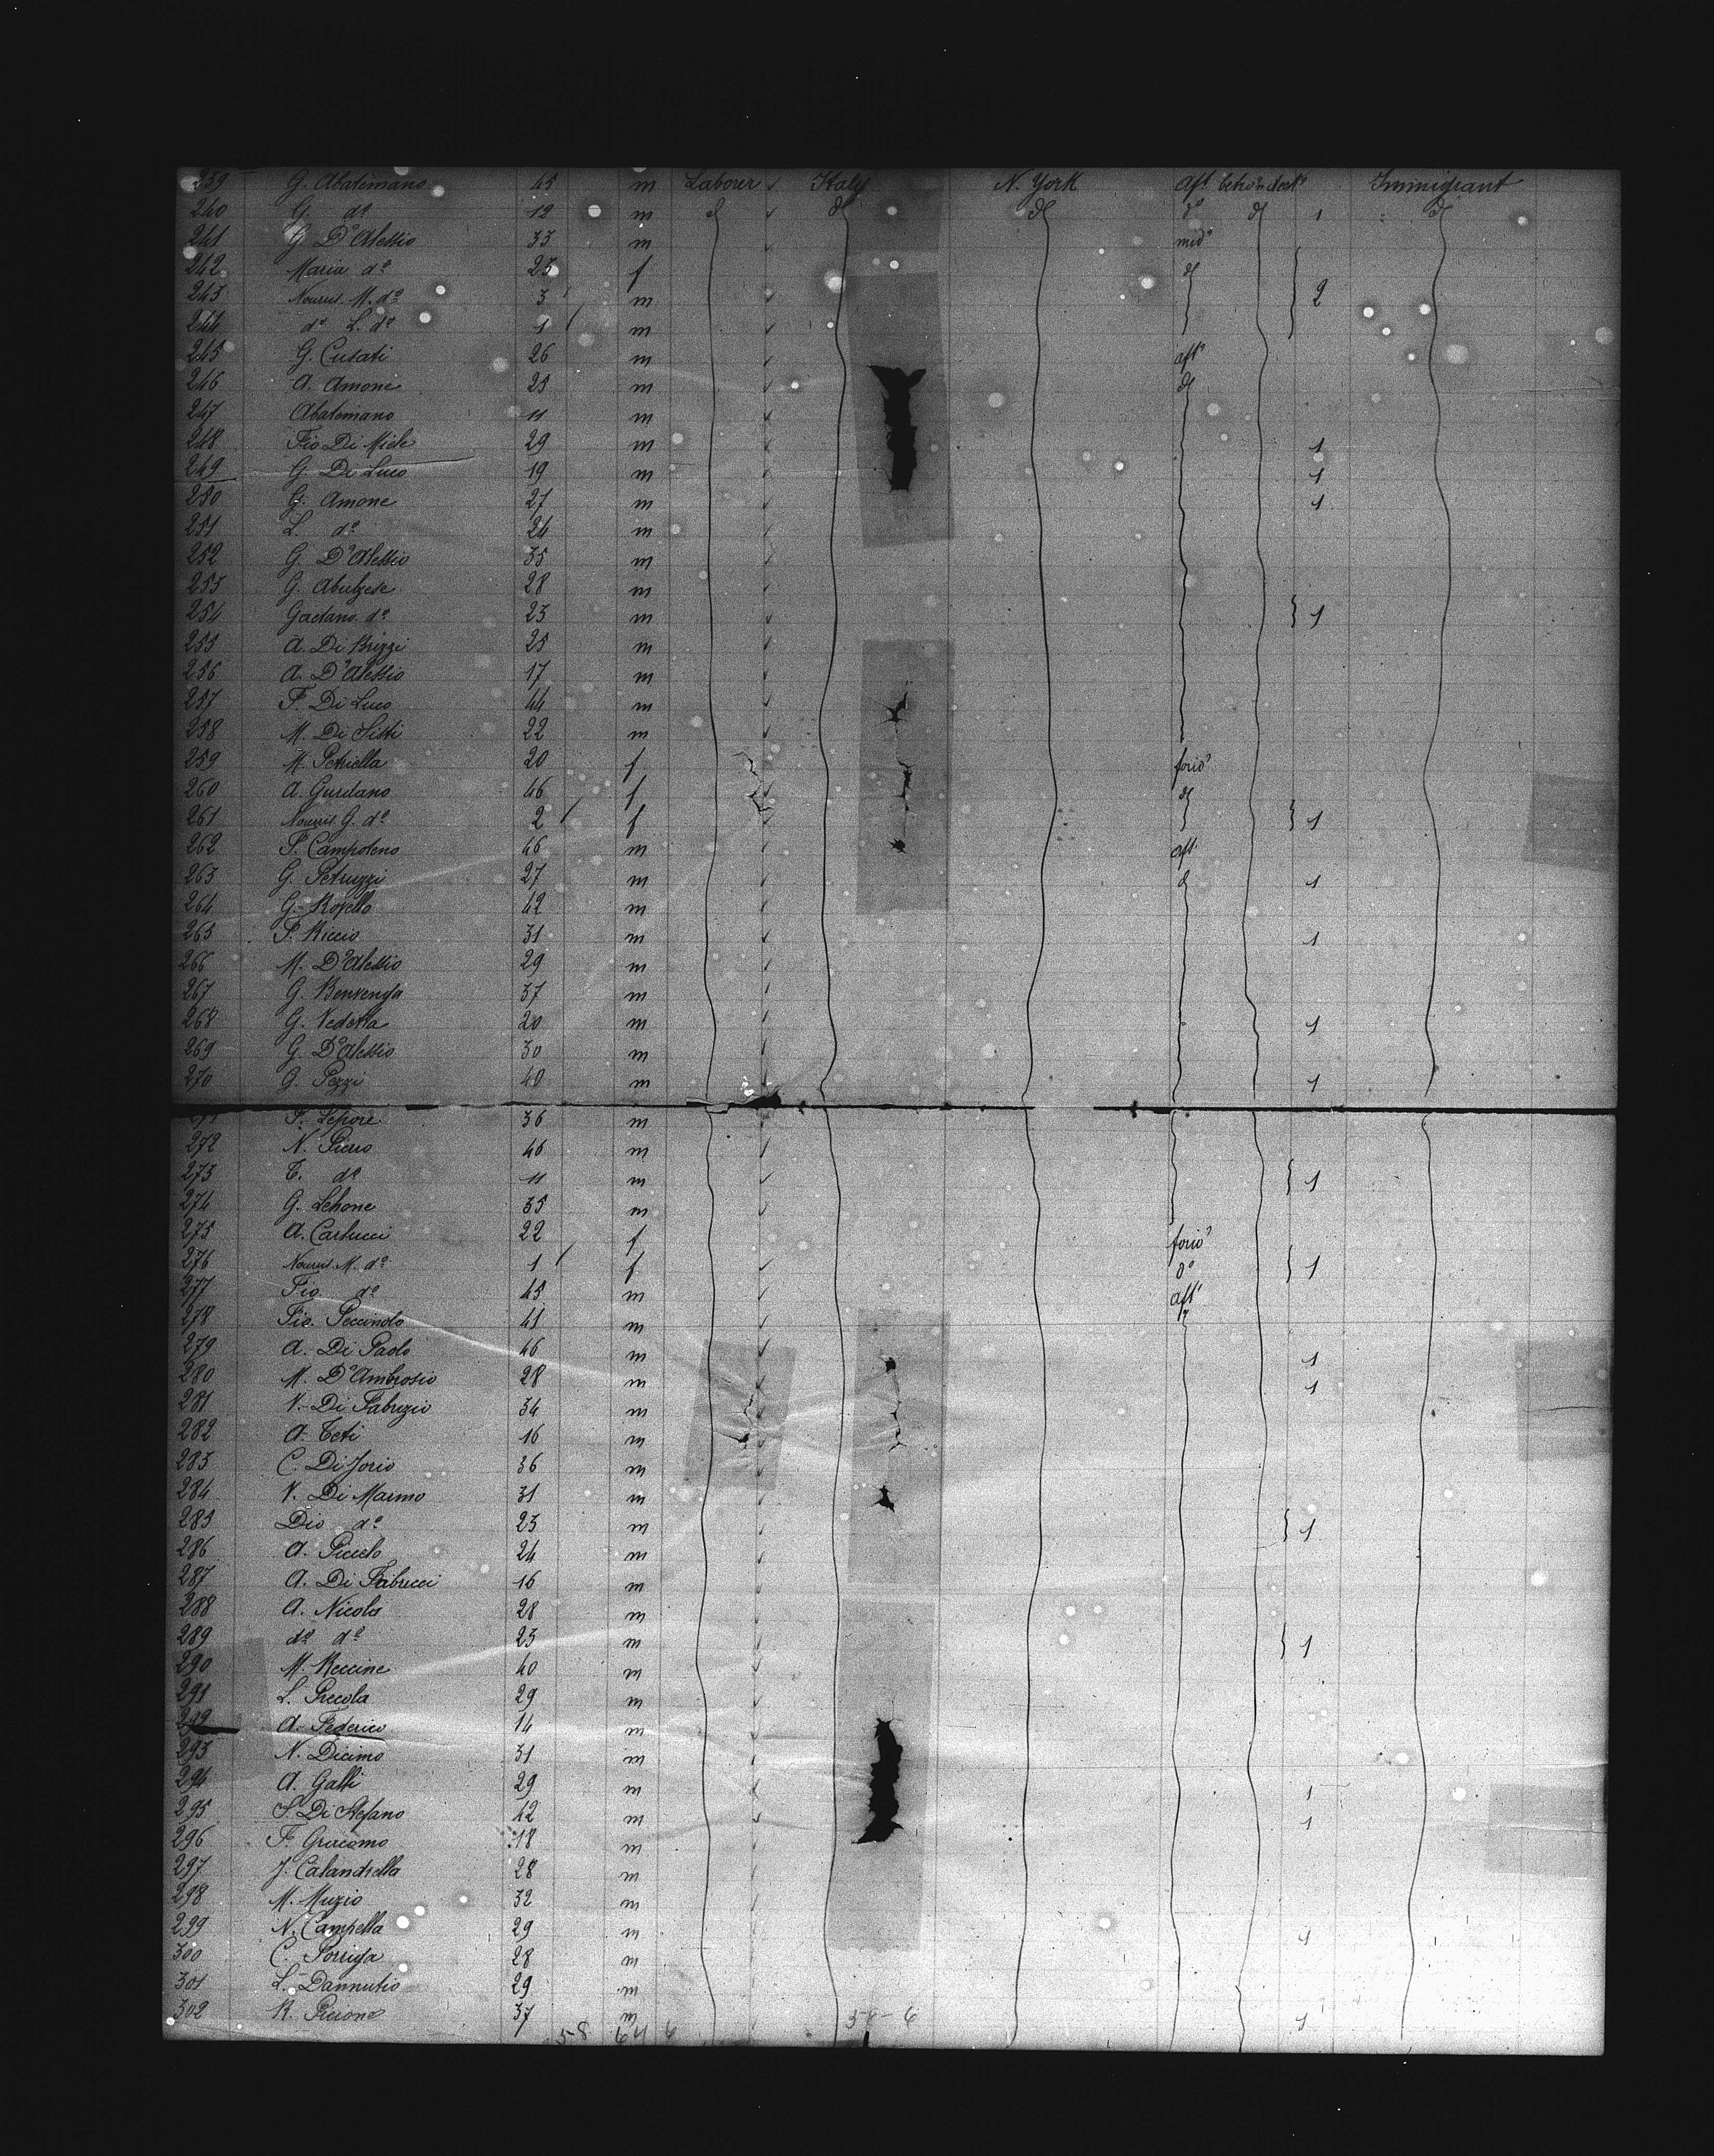 239 G. Abatemano 45 m Laborer ✓ Italy N. York Aft betw'n decks Immigrant
240 G. dº 12 m d ✓ d d dº d 1 d
241 G. D'Alessio 33 m ✓ mid'
242 Maria dº 23 f d
243 Nourris. M. dº 3 m ✓ } 2
244 dº L. dº 1 / m ✓
245 G. Cusati 26 m ✓ aft'
246 A. Amone 25 m ✓ d
247 Abatemano 11 m ✓
248 Fio Di Miele 29 m ✓ 1
249 G. Di Luco 19 m ✓ 1
250 G. Amone 27 m ✓ 1
251 L. dº 24 m ✓
252 G. D'Alessio 35 m ✓
253 G. Abulzese 28 m ✓
254 Gaetano dº 23 m ✓ } 1
255 A. Di Brizzi 25 m ✓
256 A. D'Alessio 17 m ✓
257 F. Di Luco 44 m ✓
258 M. Di Sisti 22 m ✓
259 M. Petriella 20 f forw'
260 A. Gurdano 46 f ✓ d
261 Nourris. G. dº 2 / f ✓ } 1
262 P. Campoleno 46 m ✓ aft.
263 G. Petruzzi 27 m ✓ d 1
264 G. Rovello 42 m ✓
265 P. Riccio 31 m ✓ 1
266 M. D'Alessio 29 m ✓
267 G. Benvenga 37 m ✓
268 G. Vedetta 20 m ✓ 1
269 G. D'Alessio 30 m ✓
270 G. Pezzi 40 m ✓ 1
P. Lepore 36 m ✓
272 N. Piero 46 m ✓
273 C. dº 11 m ✓ } 1
274 G. Lehone 35 m ✓
275 A. Carlucci 22 f forw'
276 Nourris. M. dº 1 / f ✓ dº } 1
277 Fio. dº 45 m ✓ aft'
278 Fio. Peccinolo 41 m ✓
279 A. Di Paolo 46 m ✓ 1
280 M. D'Ambrosio 28 m ✓ 1
281 V. Di Fabrizio 34 m ✓
282 A. Teti 16 m ✓
283 C. Di Jorio 36 m ✓
284 V. Di Marmo 31 m ✓
285 Dio dº 23 m ✓ } 1
286 A. Piccolo 24 m ✓
287 A. Di Fabrucci 16 m ✓
288 A. Nicola 28 m ✓
289 dº dº 23 m ✓ } 1
290 M. Reccine 40 m ✓
291 L. Precola 29 m ✓
292 A. Federico 14 m ✓
293 N. Dicimo 31 m ✓
294 A. Galli 29 m ✓ 1
295 S. Di Stefano 42 m ✓ 1
296 F. Giacomo 18 m ✓
297 J. Calandrella 28 m ✓
298 M. Muzio 32 m ✓
299 N. Campella 29 m ✓ 1
300 C. Porriga 28 m ✓
301 L. Dannutio 29 m
302 R. Picione 37 m 1
58 64 6